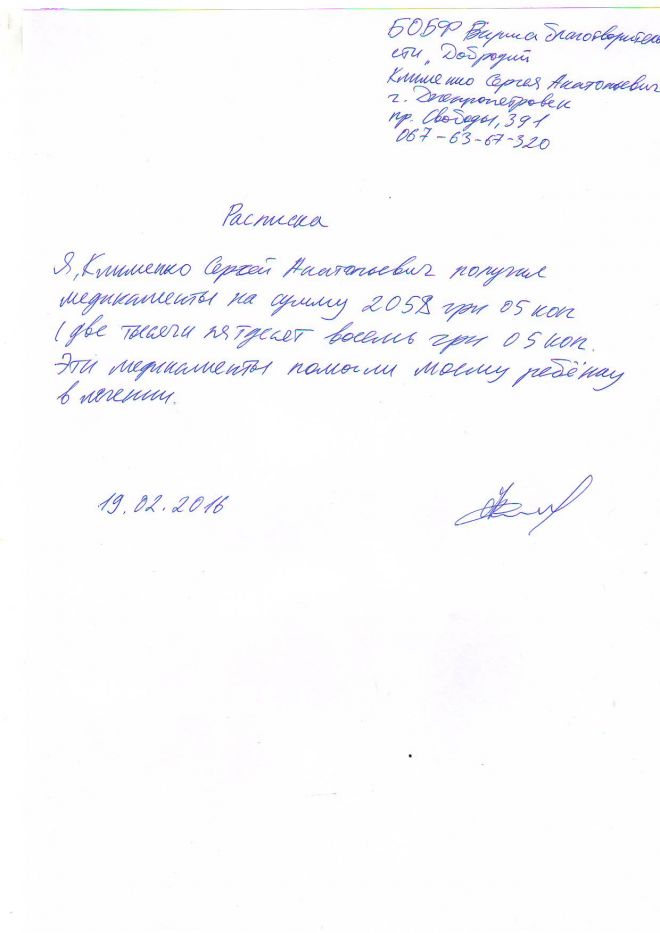 БОБФ Биржа благотворитель
сти "Добродий
Клименко Сергея Анатольевич
г. Днепропетровск
пр. Свободы, 391
067-63-67-320
Расписка
Я, Клименко Сергей Анатольевич получил
медикаменты на сумму 2058 грн 05 коп
(две тысячи пятдесят восемь грн 05 коп.
Эти медикаменты помогли моему ребёнку
в лечении.
19.02.2016